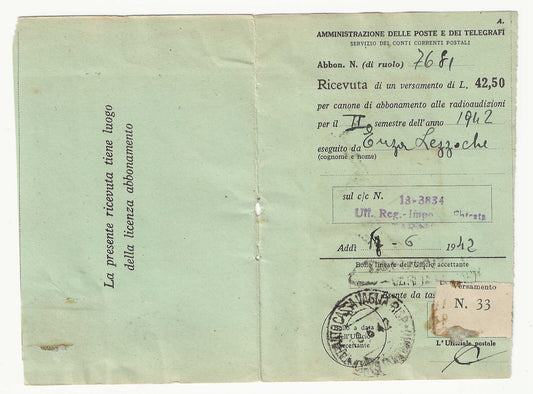 La presente ricevuta tiene luogo
della licenza abbonamento
A.
AMMINISTRAZIONE DELLE POSTE E DEI TELEGRAFI
SERVIZIO DEI CONTI CORRENTI POSTALI
Abbon. N. (di ruolo) 7681
Ricevuta di un versamento di L. 42,50
per canone di abbonamento alle radioaudizioni
per il II semestre dell'anno 1942
eseguito da Enzo
(cognome e nome)
sul c/c N. 18-3834
Uff. Reg.
Addì 6 1942
Bollo lineare dell'Ufficio accettante
Esente da
Versamento
N. 33
o a data
dell'Ufficio
accettante
L'Ufficiale postale